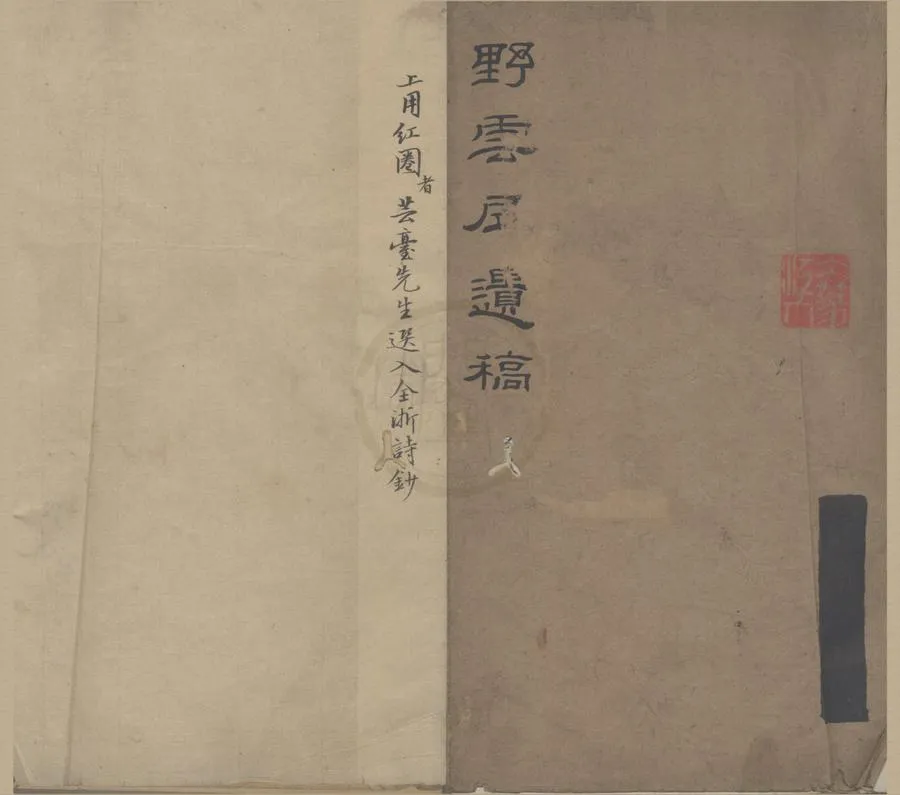 野雲居遺稿
上用紅圈者芸臺先生選入全浙詩鈔